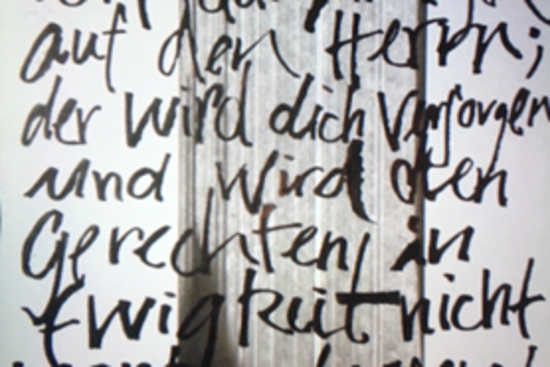 auf den Herrn;
der wird dich versorgen
und wird den
Gerechten in
Ewigkeit nicht